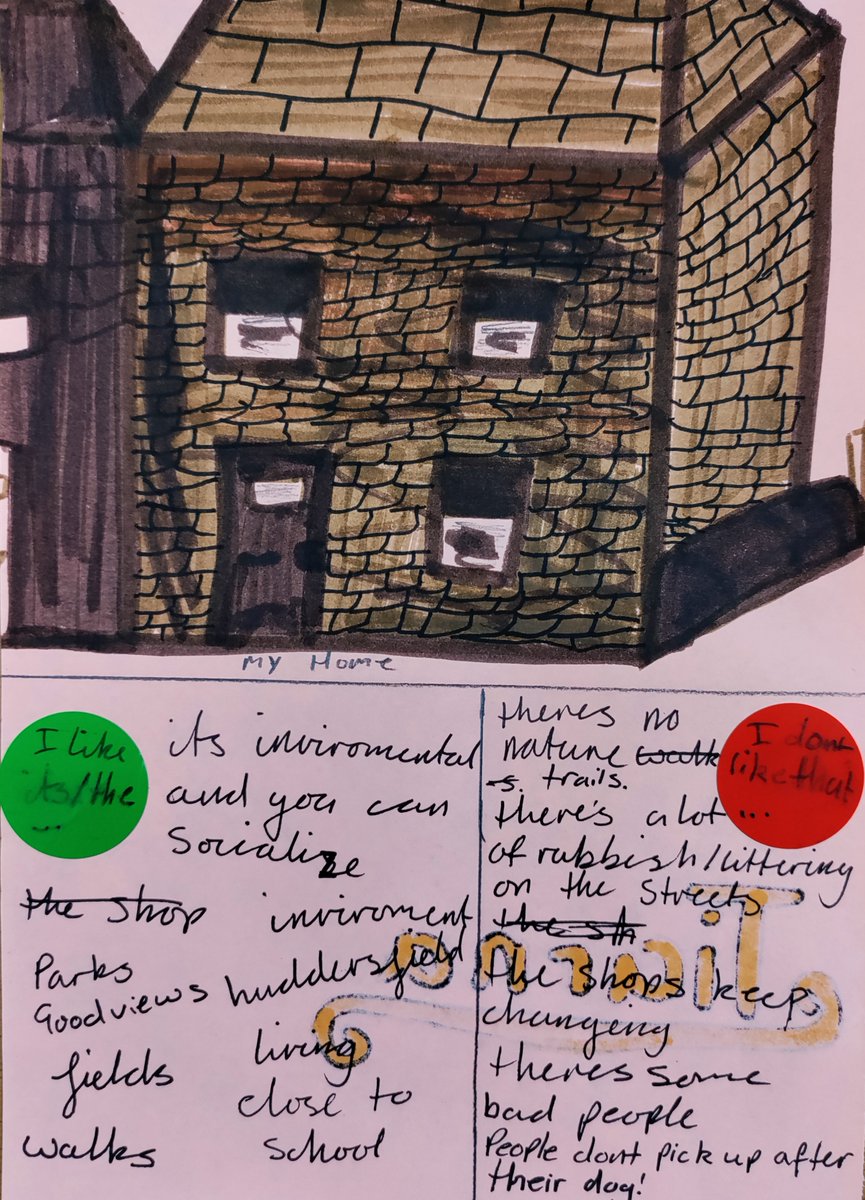 My Home
I like
its/the
...
its inviromental
and you can
Socialize
the shop
Parks
Good views
fields
walks
inviroment
huddersfield
living
close to
school
I dont
like that
...
theres no
nature walk
s. trails.
there's a lot
of rubbish/littering
on the streets
the sh
the shops keep
changeing
theres some
bad people
People dont pick up after
their dog!